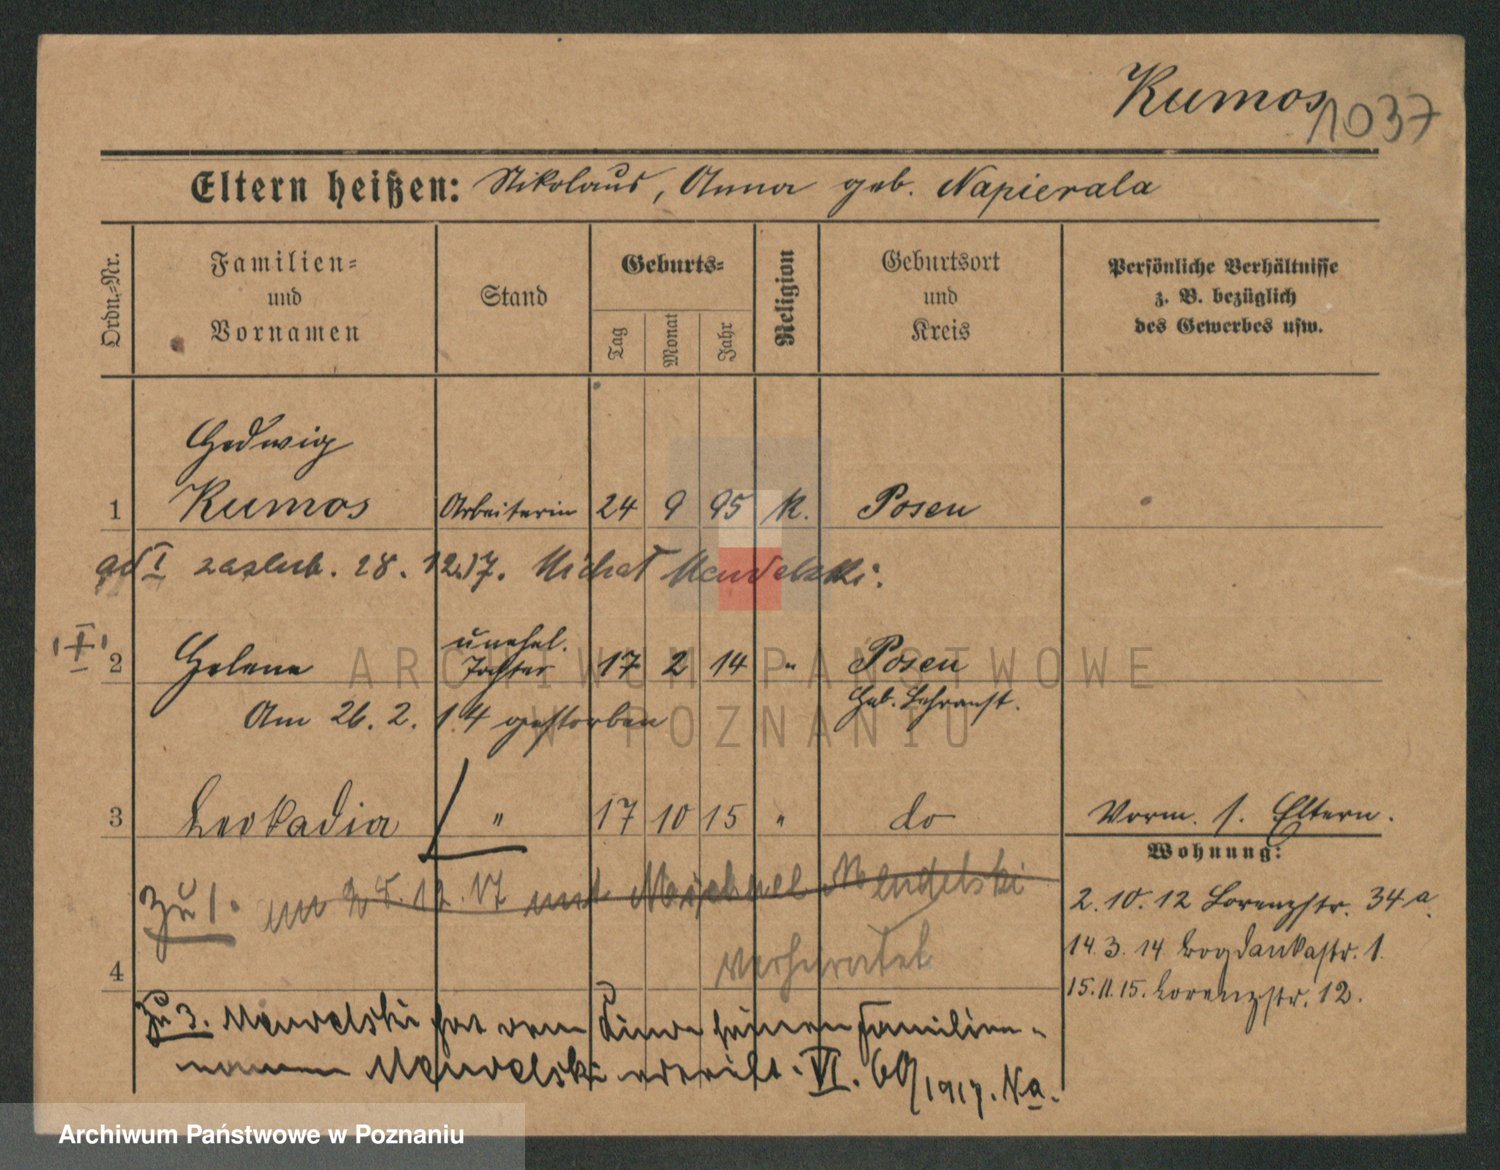 Kumos
1037
Eltern heißen: Nikolaus, Anna geb. Napierala
Ordn.-Nr.
Familien-
und
Vornamen
Stand
Geburts-
Tag
Monat
Jahr
Religion
Geburtsort
und
Kreis
Persönliche Verhältnisse
z. B. bezüglich
des Gewerbes usw.
Hedwig
1 Kumos Arbeiterin 24 9 95 k. Posen
ad I zaślub. 28. 12.17. Michał Mendelski.
unehel.
2 Helene Tochter 17 2 14 " Posen
Am 26. 2. 14 gestorben Heb. Lehranst.
3 Leokadia " 17 10 15 " do Vorm. s. Eltern.
Wohnung:
Zu 1. am 28. 12. 17 mit Michael Mendelski
verheiratet
4
2. 10. 12 Lorenzstr. 34 a.
14. 3. 14 Bogdankastr. 1.
15. 11. 15. Lorenzstr. 12.
Zu 3. Mendelski hat dem Kinde seinen Familien-
namen Mendelski erteilt. VI. 60/1917. Na.
ARCHIWUM PAŃSTWOWE
W POZNANIU
Archiwum Państwowe w Poznaniu